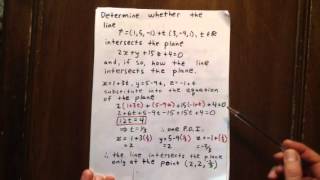 Determine whether the
line
r=(1,5,-1)+t(3,-9,1), t∈R
intersects the plane
2x+y+15z+4=0
and, if so, how the line
intersects the plane.
x=1+3t, y=5-9t, z=-1+t
substitute into the equation
of the plane
2(1+3t)+(5-9t)+15(-1+t)+4=0
2+6t+5-9t-15+15t+4=0
12t=4
⇒ t=1/3 ∴ one P.O.I.
x=1+3(1/3) y=5-9(1/3) z=-1+(1/3)
=2 =2 =-2/3
∴ the line intersects the plane
only at the point (2,2,-2/3)